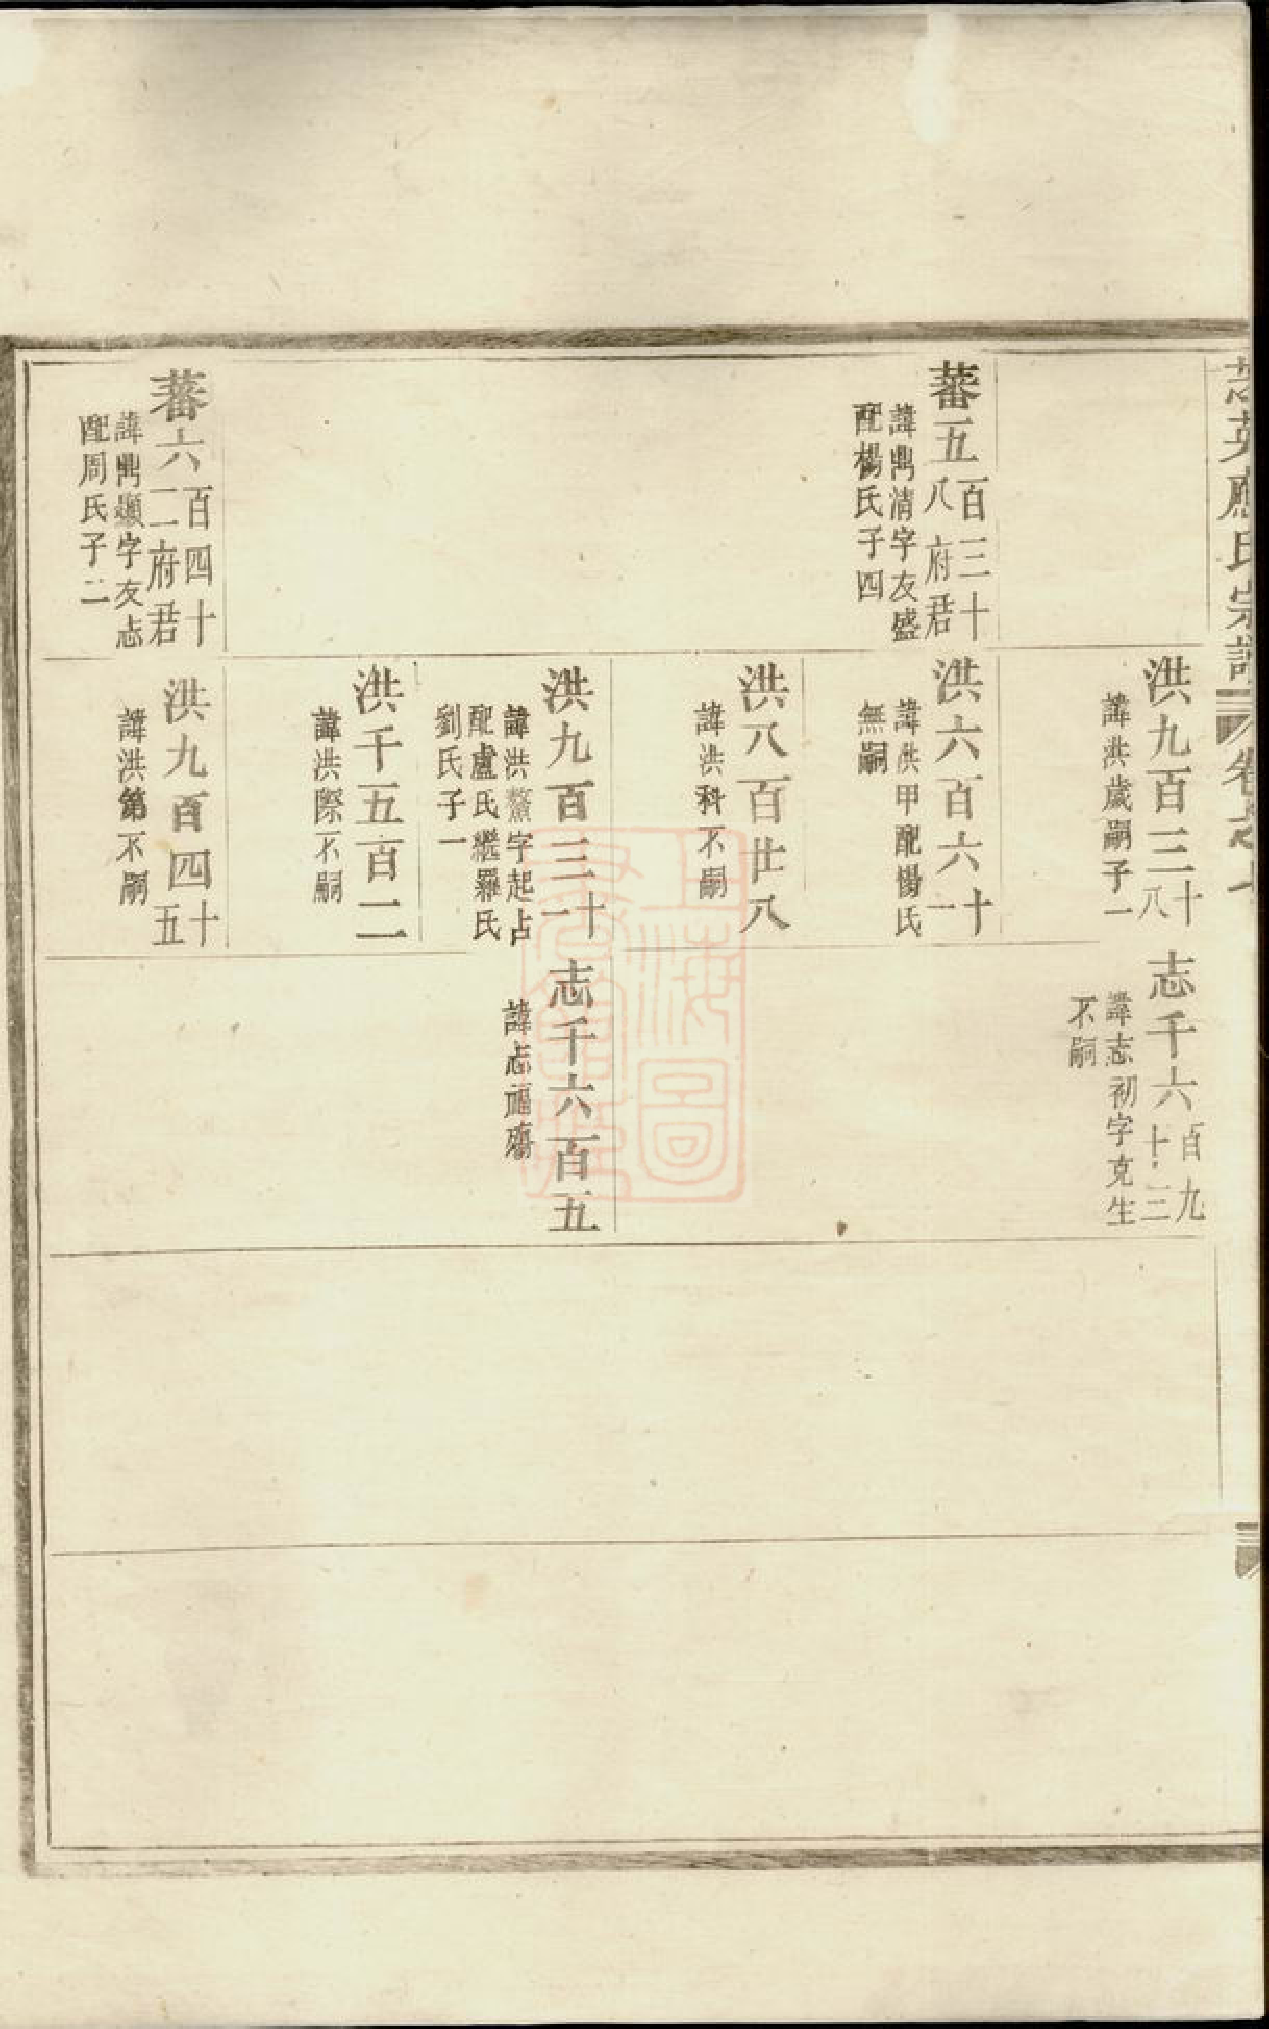 英應氏宗譜
卷之七
蕃五百三十八府君
諱鼎清字友盛
配楊氏子四
蕃六百四十二府君
諱鼎顯字友志
配周氏子二
洪九百三十八
諱洪歲嗣子一
洪六百六十一
諱洪甲配楊氏
無嗣
洪八百廿八
諱洪科不嗣
洪九百三十一
諱洪鰲字起占
配盧氏繼羅氏
劉氏子一
洪千五百二
諱洪際不嗣
洪九百四十五
諱洪第不嗣
志千六百九十三
諱志初字克生
不嗣
志千六百五
諱志福殤
上海圖